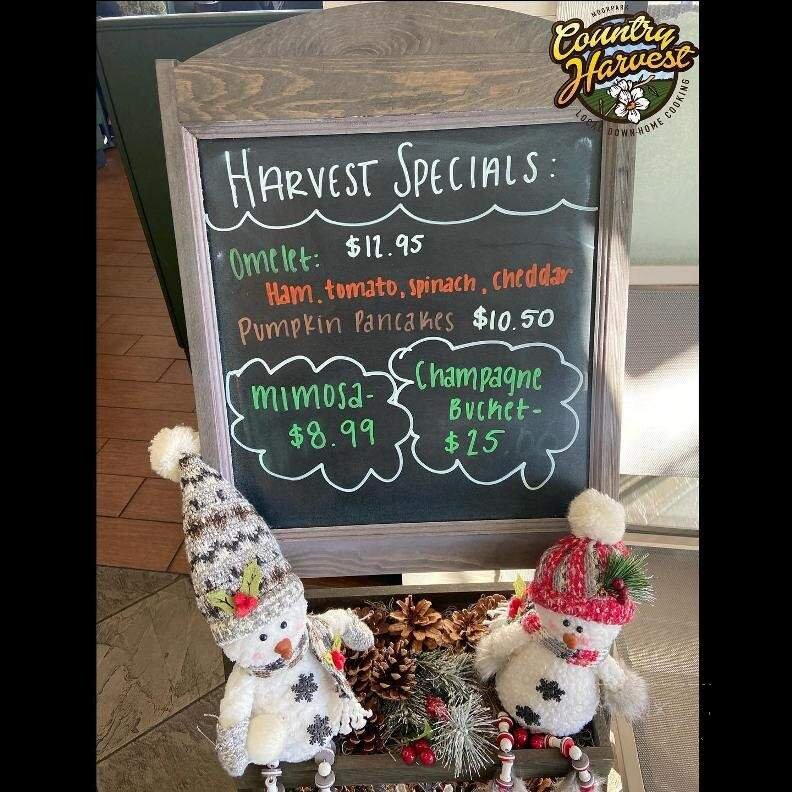 MOORPARK
Country
Harvest
LOCAL DOWN-HOME COOKING
HARVEST SPECIALS:
Omelet: $12.95
Ham, tomato, spinach, cheddar
Pumpkin Pancakes $10.50
mimosa-
$8.99
Champagne
Bucket-
$25